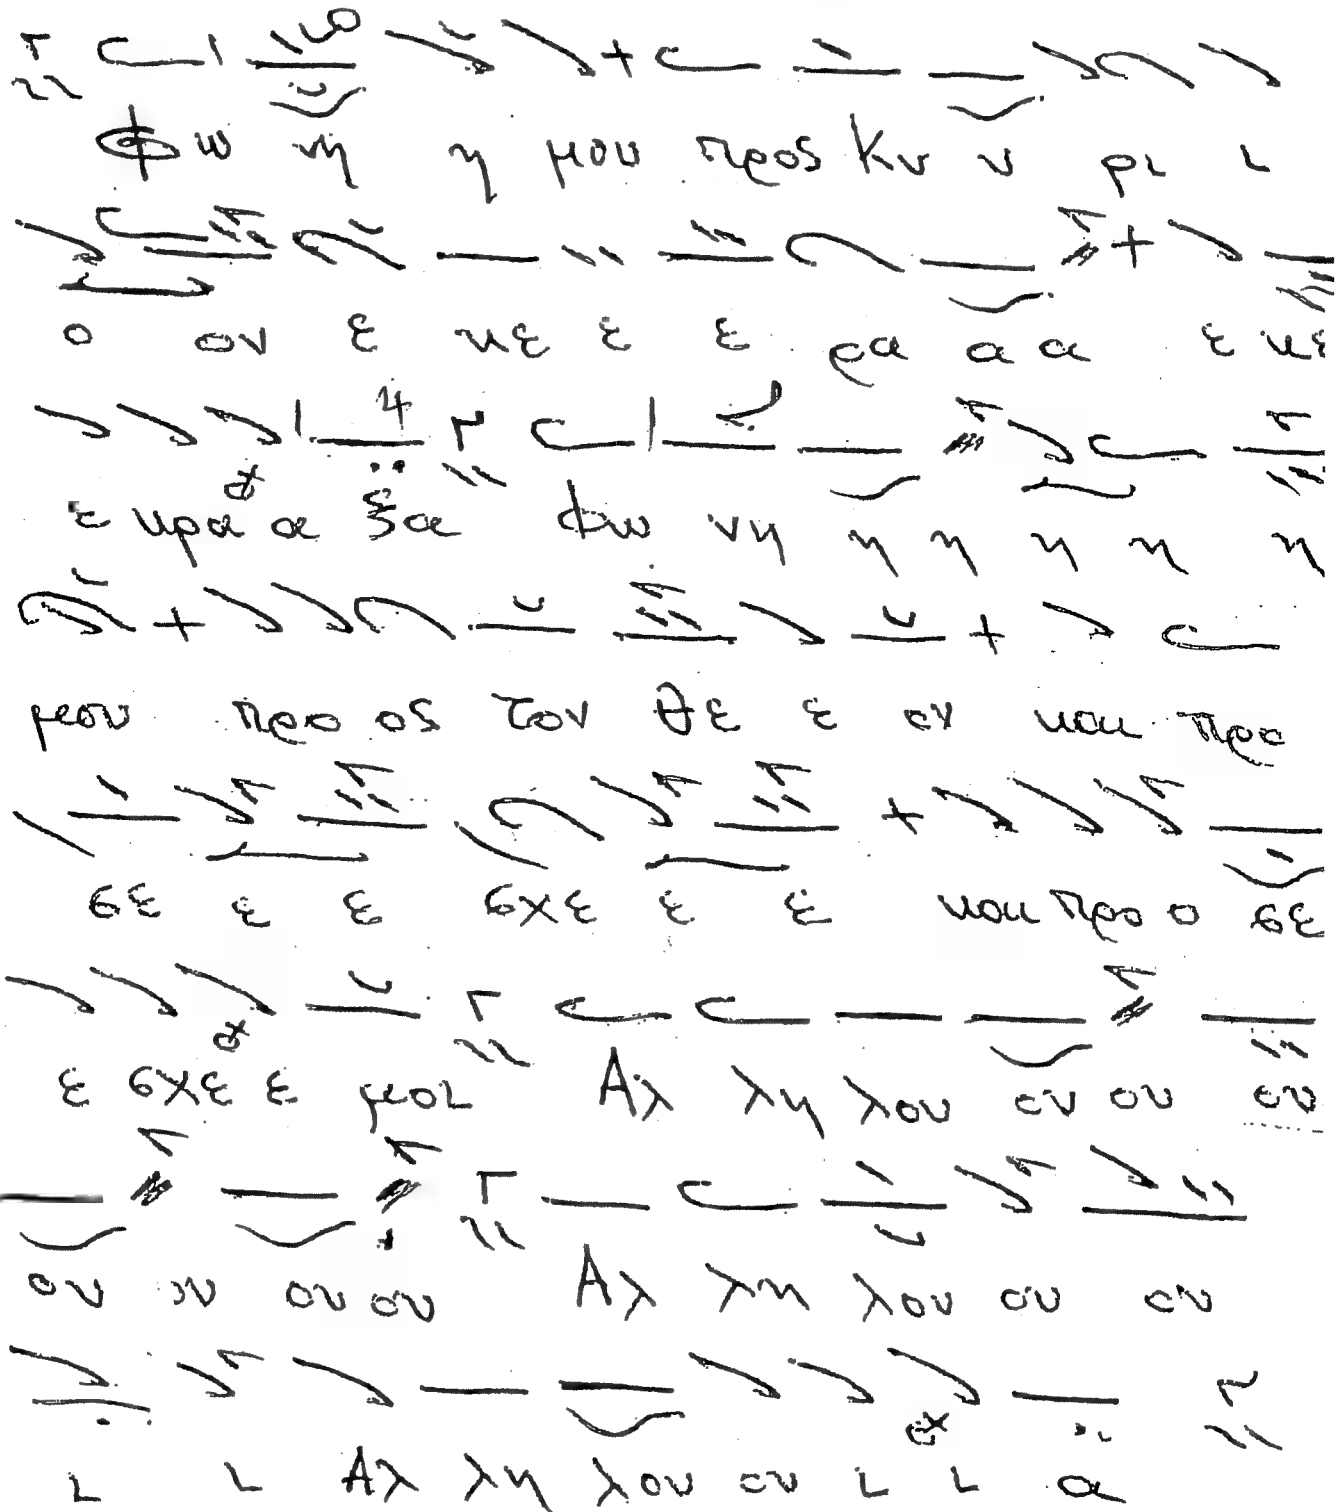 Φω νη η μου προς Κυ υ ρι ι
ο ον ε κε ε ε ρα α α ε κε
ε κρα α ξα Φω νη η η η η η
μου προ ος τον θε ε ον και προ
σε ε ε σχε ε ε και προ ο σε
ε σχε ε μοι Αλ λη λου ου ου ου
ου ου ου ου Αλ λη λου ου ου
ι ι Αλ λη λου ου ι ι α